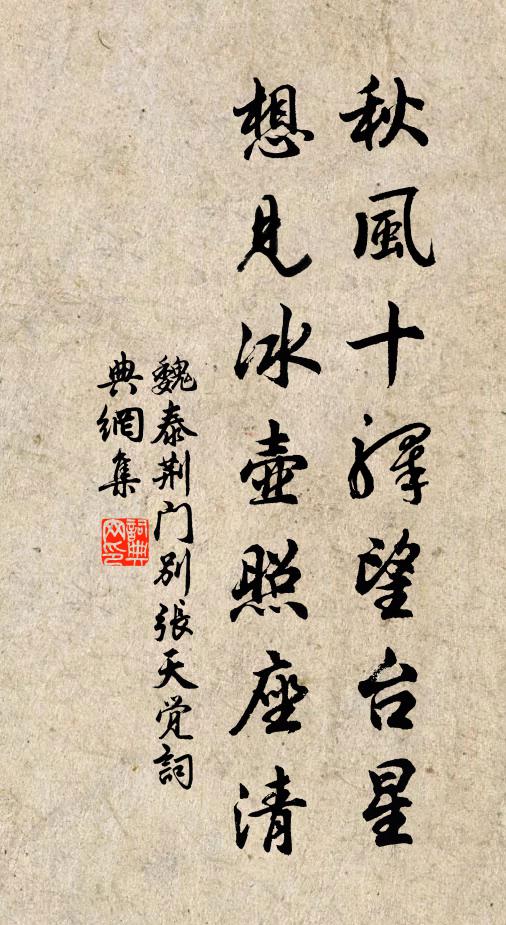 秋風十驛望台星
想見冰壺照座清
魏泰荆门別張天觉詞
典網集
詞典网印